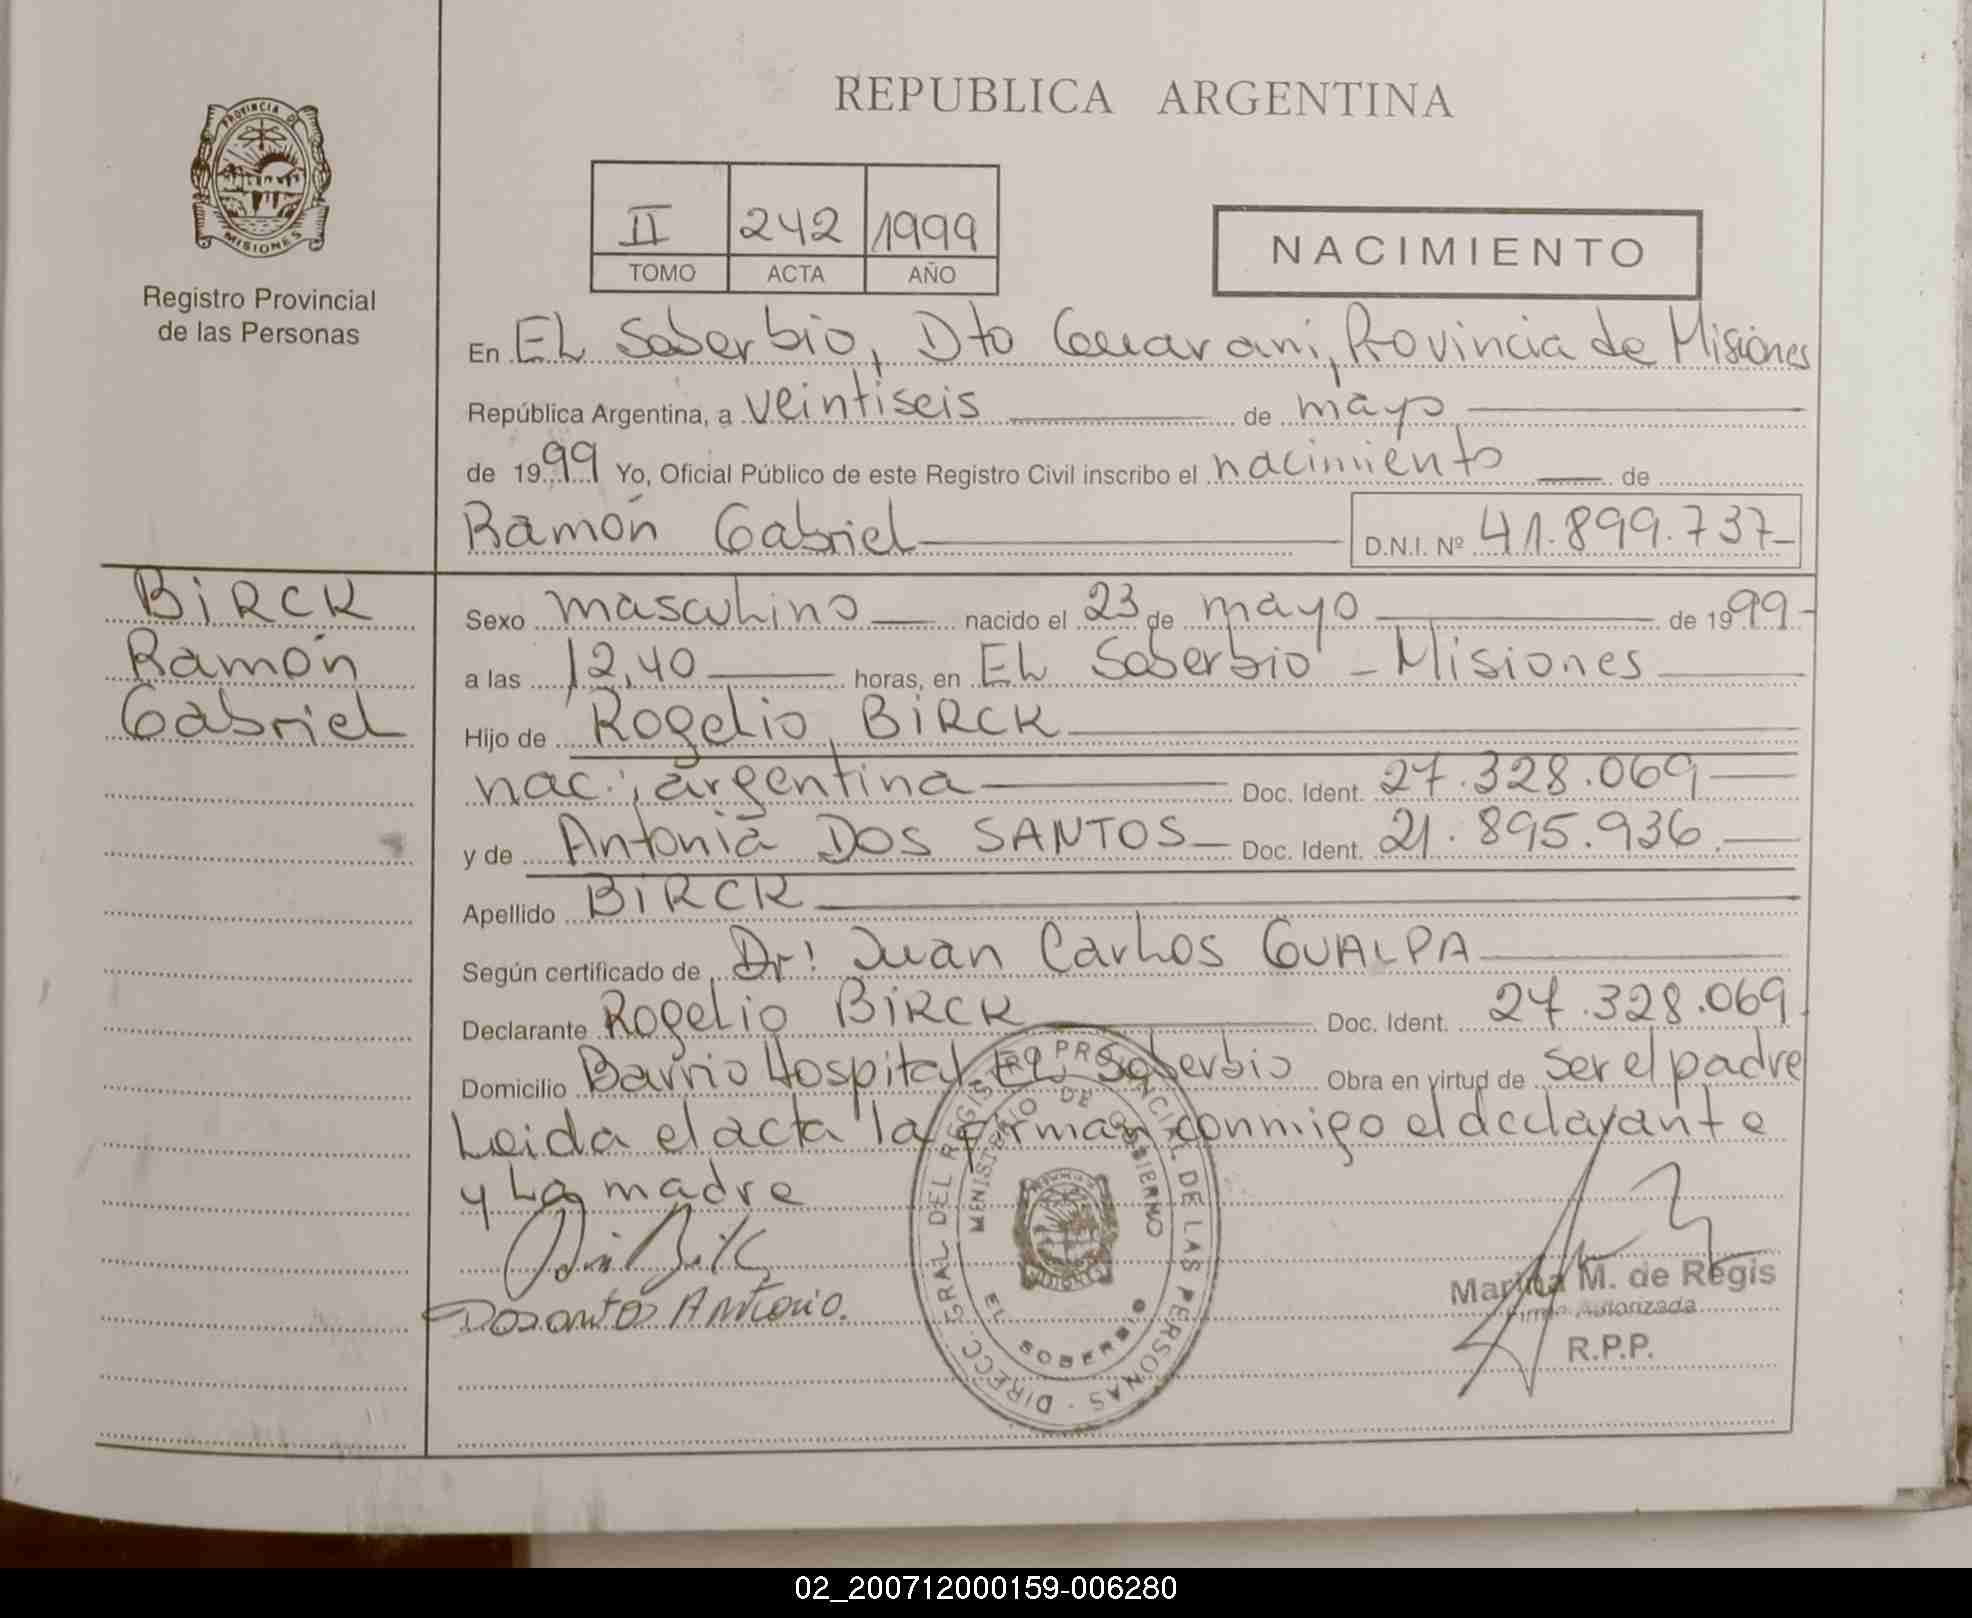 REPUBLICA ARGENTINA
PROVINCIA DE
MISIONES
Registro Provincial
de las Personas
II 242 1999
TOMO ACTA AÑO
NACIMIENTO
En EL Soberbio, Dto Guarani, Provincia de Misiones
República Argentina, a veintiseis de mayo
de 1999 Yo, Oficial Público de este Registro Civil inscribo el nacimiento de
Ramón Gabriel D.N.I. Nº 41.899.737
BIRCK
Ramón
Gabriel
Sexo masculino nacido el 23 de mayo de 1999
a las 12,40 horas, en EL Soberbio - Misiones
Hijo de Rogelio BIRCK
nac.; argentina Doc. Ident. 27.328.069
y de Antonia DOS SANTOS Doc. Ident. 21.895.936
Apellido BIRCK
Según certificado de Dr: Juan Carlos GUALPA
Declarante Rogelio BIRCK Doc. Ident. 27.328.069
Domicilio Barrio Hospital EL Soberbio Obra en virtud de ser el padre
Leida el acta la firman conmigo el declarante
y La madre
Dosantos Antonio.
DIRECC. GRAL DEL REGISTRO PROVINCIAL DE LAS PERSONAS
MENISTERIO DE GOBIERNO
EL SOBERBIO
Marina M. de Regis
Firma Autorizada
R.P.P.
02_200712000159-006280